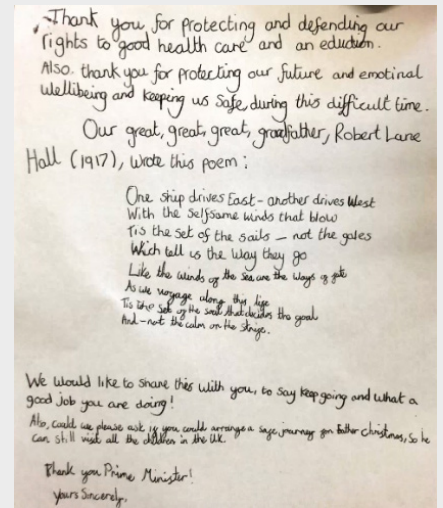 Thank you for protecting and defending our
rights to good health care and an eduction.
Also, thank you for protecting our future and emotinal
wellibeing and keeping us safe, during this difficult time.
Our great, great, great, grandfather, Robert Lane
Hall (1917), wrote this poem:
One ship drives East - another drives West
With the Selfsame winds that blow
Tis the set of the sails - not the gales
Which tell us the way they go
Like the winds of the sea are the ways of fate
As we voyage along this life
Tis the set of the soul that decides the goal
And - not the calm or the strife.
We would like to share this with you, to say keep going and what a
good job you are doing!
Also, could we please ask if you could arrange a safe, journey for Father Christmas, so he
can still visit all the children in the UK.
Thank you Prime Minister!
yours Sincerely,